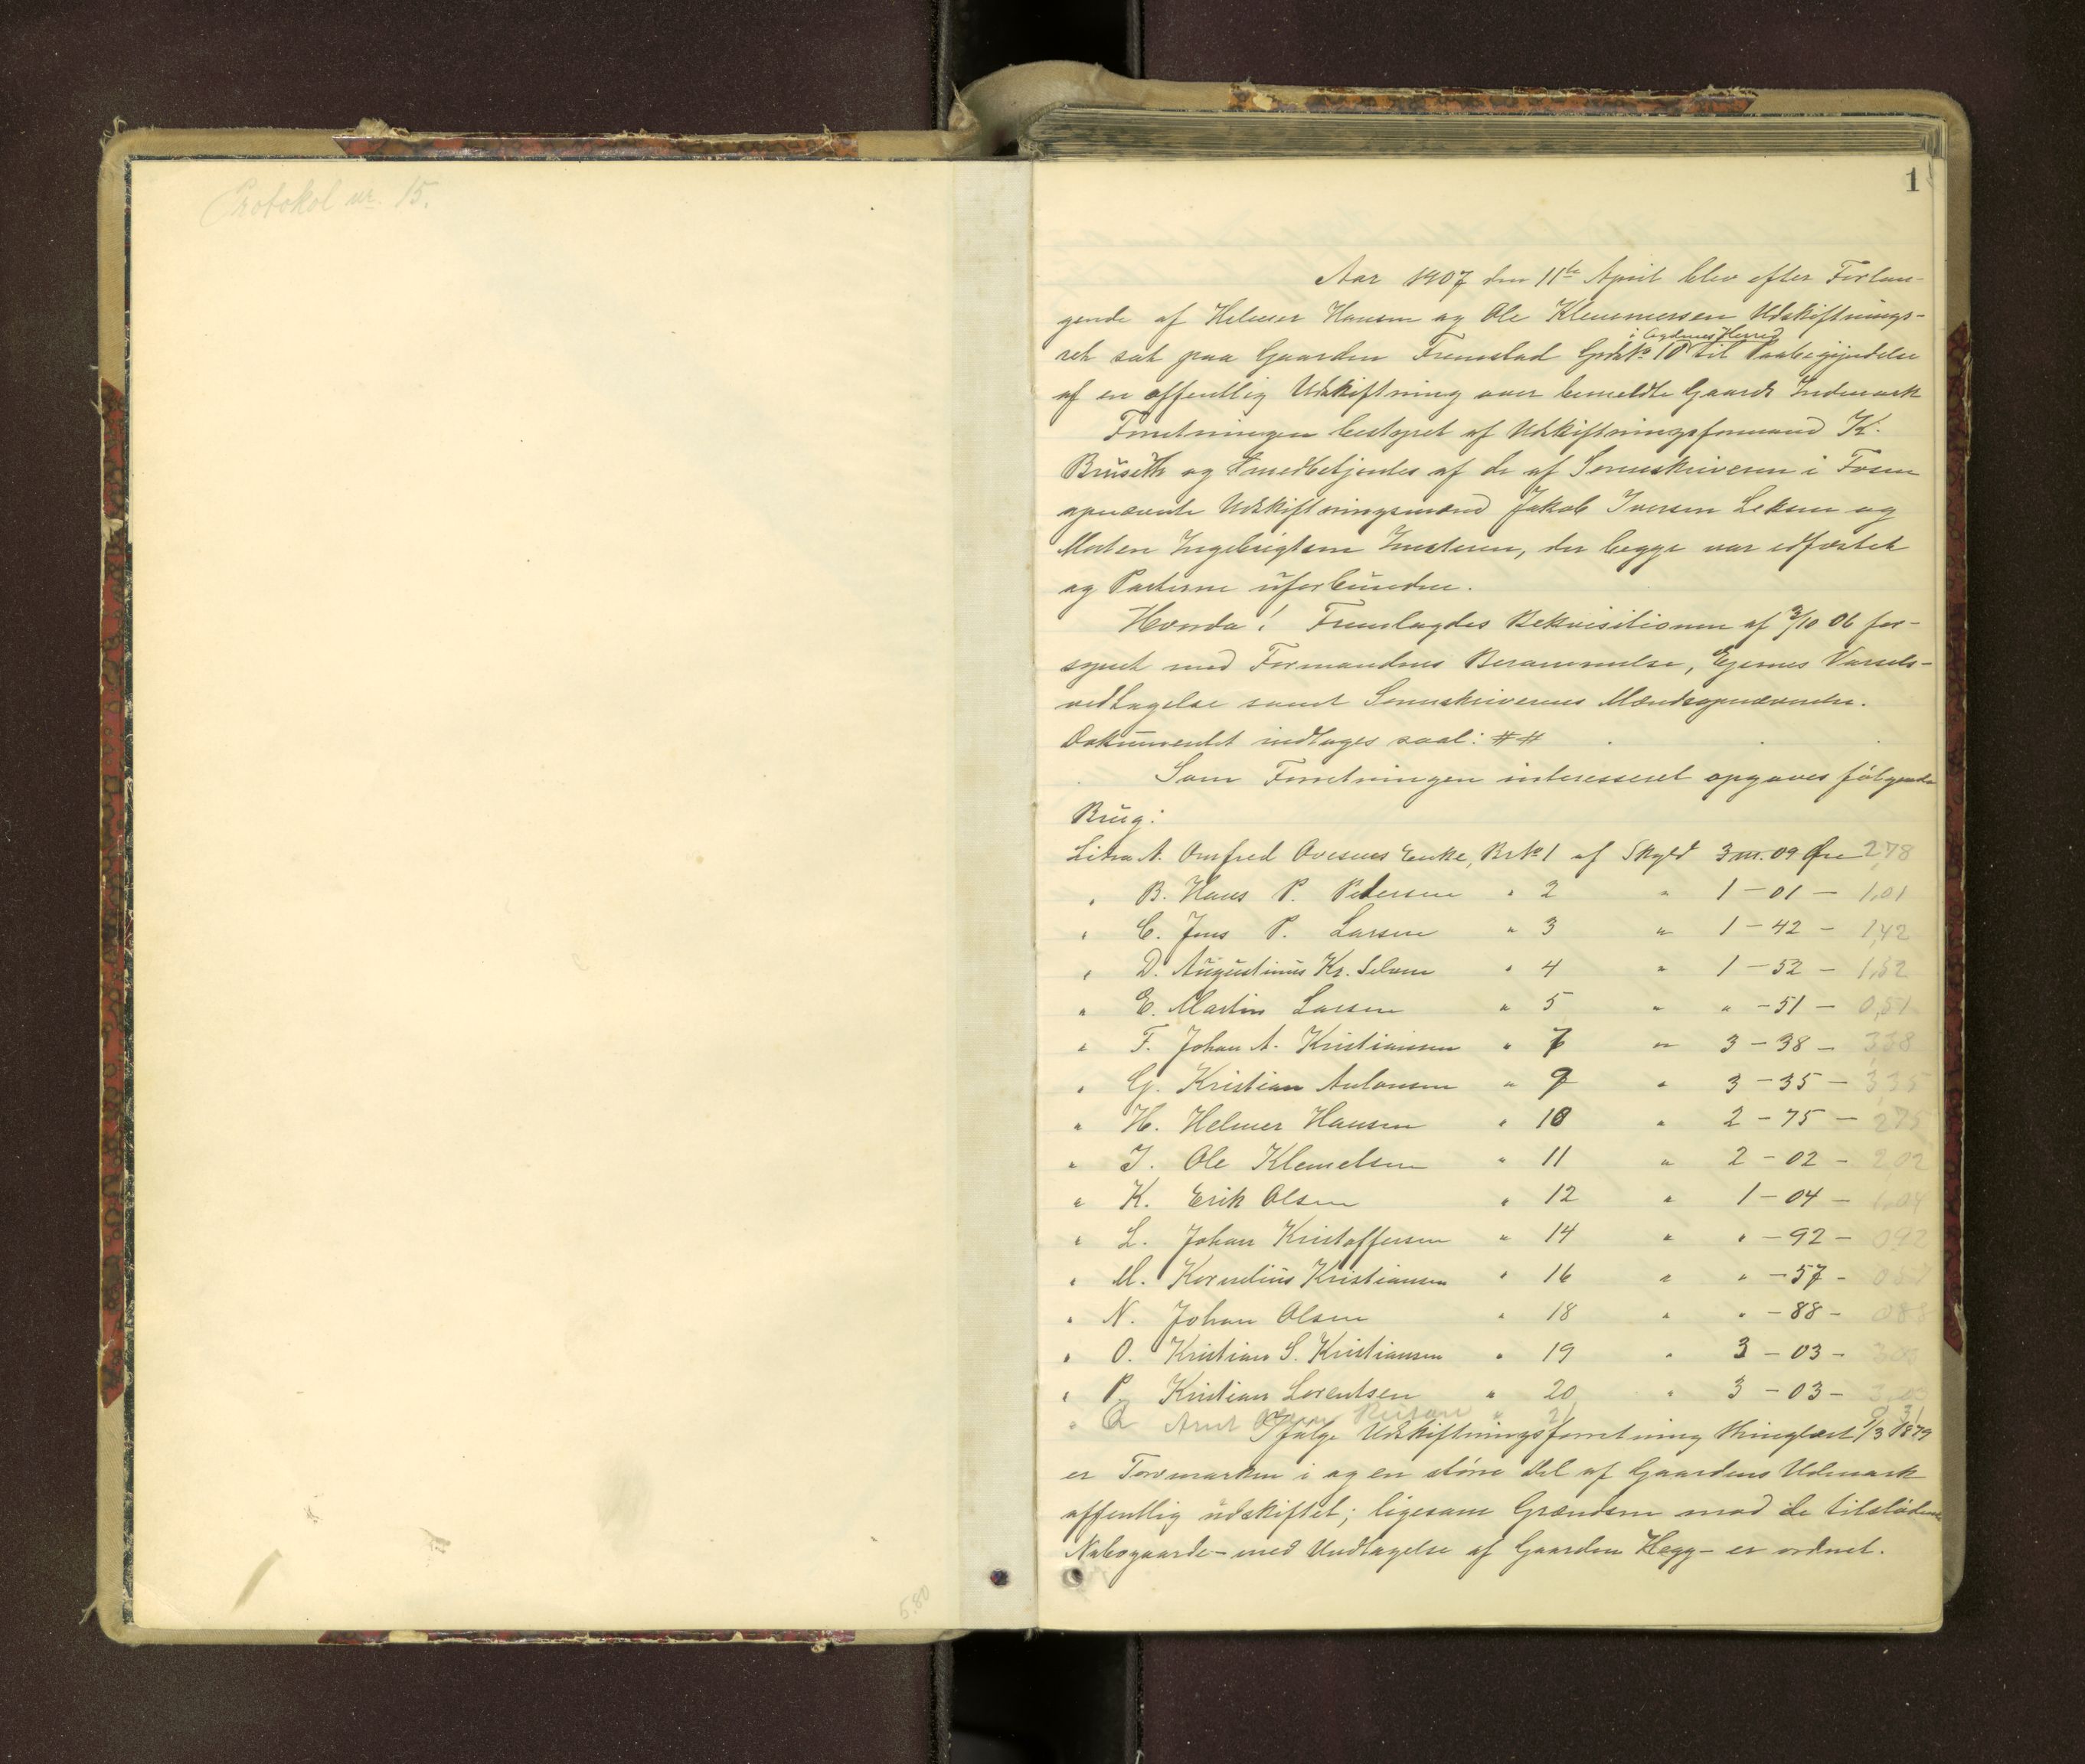 Protokol nr. 15.
5.80
1
Aar 1907 den 11te April blev efter Forlan-
gende af Helmer Hansen og Ole Klemmersen Udskiftnings-
i Agdenes Herred
ret sat paa Gaarden Fremstad Grdsk No 10 til Paabegyndelse
af en offentlig Udskiftning over bemeldte Gaards Indmark
Forretningen bestyret af Udskiftningsformand K.
Bruseth og medbetjentes af de af Sorenskriveren i Fosen
opnævnte Udskiftningsmænd Jakob Iversen Leksen og
Morten Ingebrigtsen Imsteren, der begge var edfæstet
og Parterne uforbundne.
Hvorda! Fremlagdes Rekvisitionen af 3/10 06 for-
synet med Formandens Berammelse, Ejernes Varsels-
vedtagelse samt Sorenskriverens Mændsopnævnelse.
Dokumentet indtages saal: ##
Som Forretningen interesseret opgaves følgende
Brug:
Litra A. Arnfred Ovesens Enke, Br No 1 af Skyld 3 m. 09 Øre 2,78
" B. Hans P. Pedersen " 2 " 1 - 01 - 1,01
" C. Jens P. Larsen " 3 " 1 - 42 - 1,42
" D. Augustinus Kr. Selven " 4 " 1 - 52 - 1,52
" E. Martin Larsen " 5 " " - 51 - 0,51
" F. Johan A. Kristiansen " 7 " 3 - 38 - 3,38
" G. Kristian Antonsen " 9 " 3 - 35 - 3,35
" H. Helmer Hansen " 10 " 2 - 75 - 2,75
" I. Ole Klemetsen " 11 " 2 - 02 - 2,02
" K. Erik Olsen " 12 " 1 - 04 - 1,04
" L. Johan Kristoffersen " 14 " " - 92 - 0,92
" M. Kornelius Kristiansen " 16 " " - 57 - 0,57
" N. Johan Olsen " 18 " " - 88 - 0,88
" O. Kristian S. Kristiansen " 19 " 3 - 03 - 3,03
" P. Kristian Lorentsen " 20 " 3 - 03 - 3,03
" Q Arnt " 21 0,31
Ifølge Udskiftningsforretning thinglæst 1/3 1879
er Torvmarken i og en større Del af Gaardens Udmark
offentlig udskiftet; ligesom Grændsen mod de tilstødende
Nabogaarde - med Undtagelse af Gaarden Hegg - er ordnet.